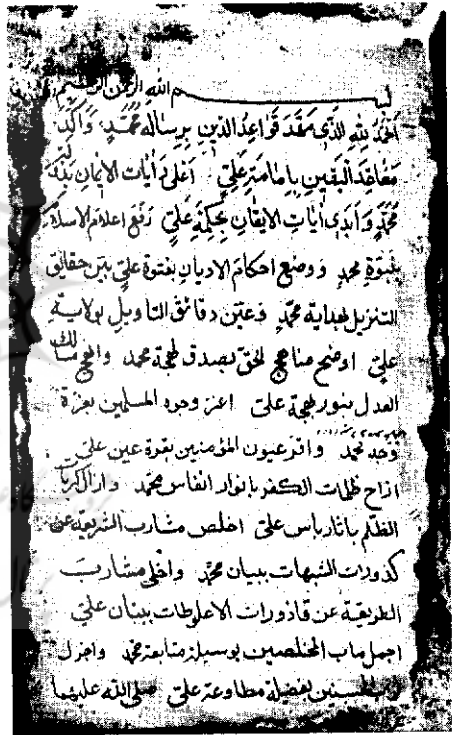 بسم الله الرحمن الرحيم
الحمد لله الذى مهّد قَواعِدُ الدّينِ بِرِسالة مُحَمَّد وَاَكّدَ
مَعٰاقِدَ الْيَقينِ بِاِمٰامَةِ عَلِيّ اَعْلىٰ رٰايٰات الايمٰانِ
مُحَمَّدٍ وَ اَبْدىٰ اٰيٰاتِ الايقٰانِ بِحِكمَةِ عَلِيّ رَفَعَ اعلام الاسلام
بنبوّةِ محمدٍ و وضع احكام الاديان بفتوة علىّ بيّن حقائق
التنزيل لهداية محمّدٍ و عيّن دقائق التاويل بولاية
علىّ اوضح مناهج الحقّ بصدق لهجة محمد و انهج مسالك
العدل بنور لهجة علىّ اعز وجوه المسلمين بعزة
وجد محمد و اقرّ عيون المؤمنين بقوة عين علىّ
ازاح ظلمات الكفر بانوار انفاس محمّد و ازال كربات
الظلم باثار باس علىّ اخلص مشارب الشريعة عن
كدورات الشبهات ببيان محمّد و اخلى مشارب
الطريقة عن قاذورات الاغلوطات ببيان علىّ
اجمل ماب المخلصين بوسيلة متابعة محمّد و اجزل
المحسنين بفضيلة مطاوعة علىّ صلى الله عليهما